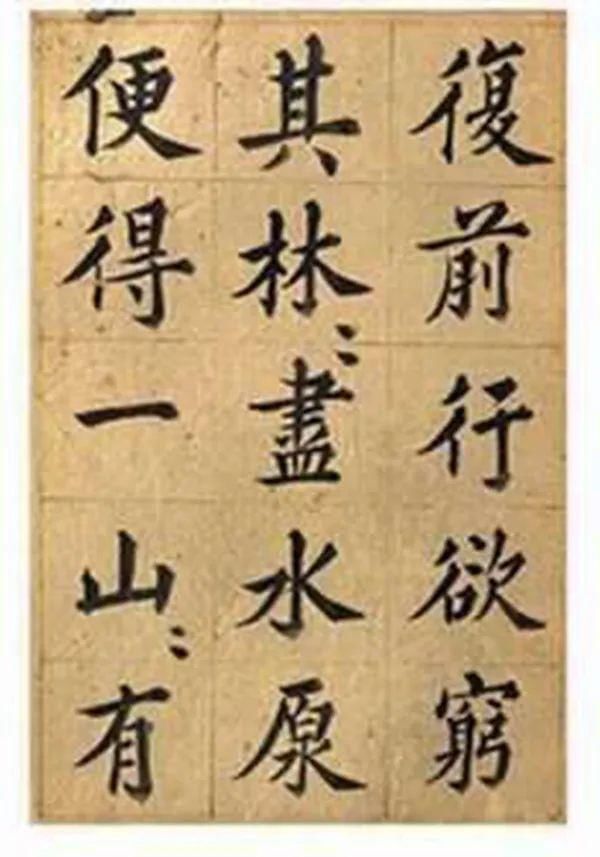 復前行欲窮
其林〻盡水原
便得一山〻有